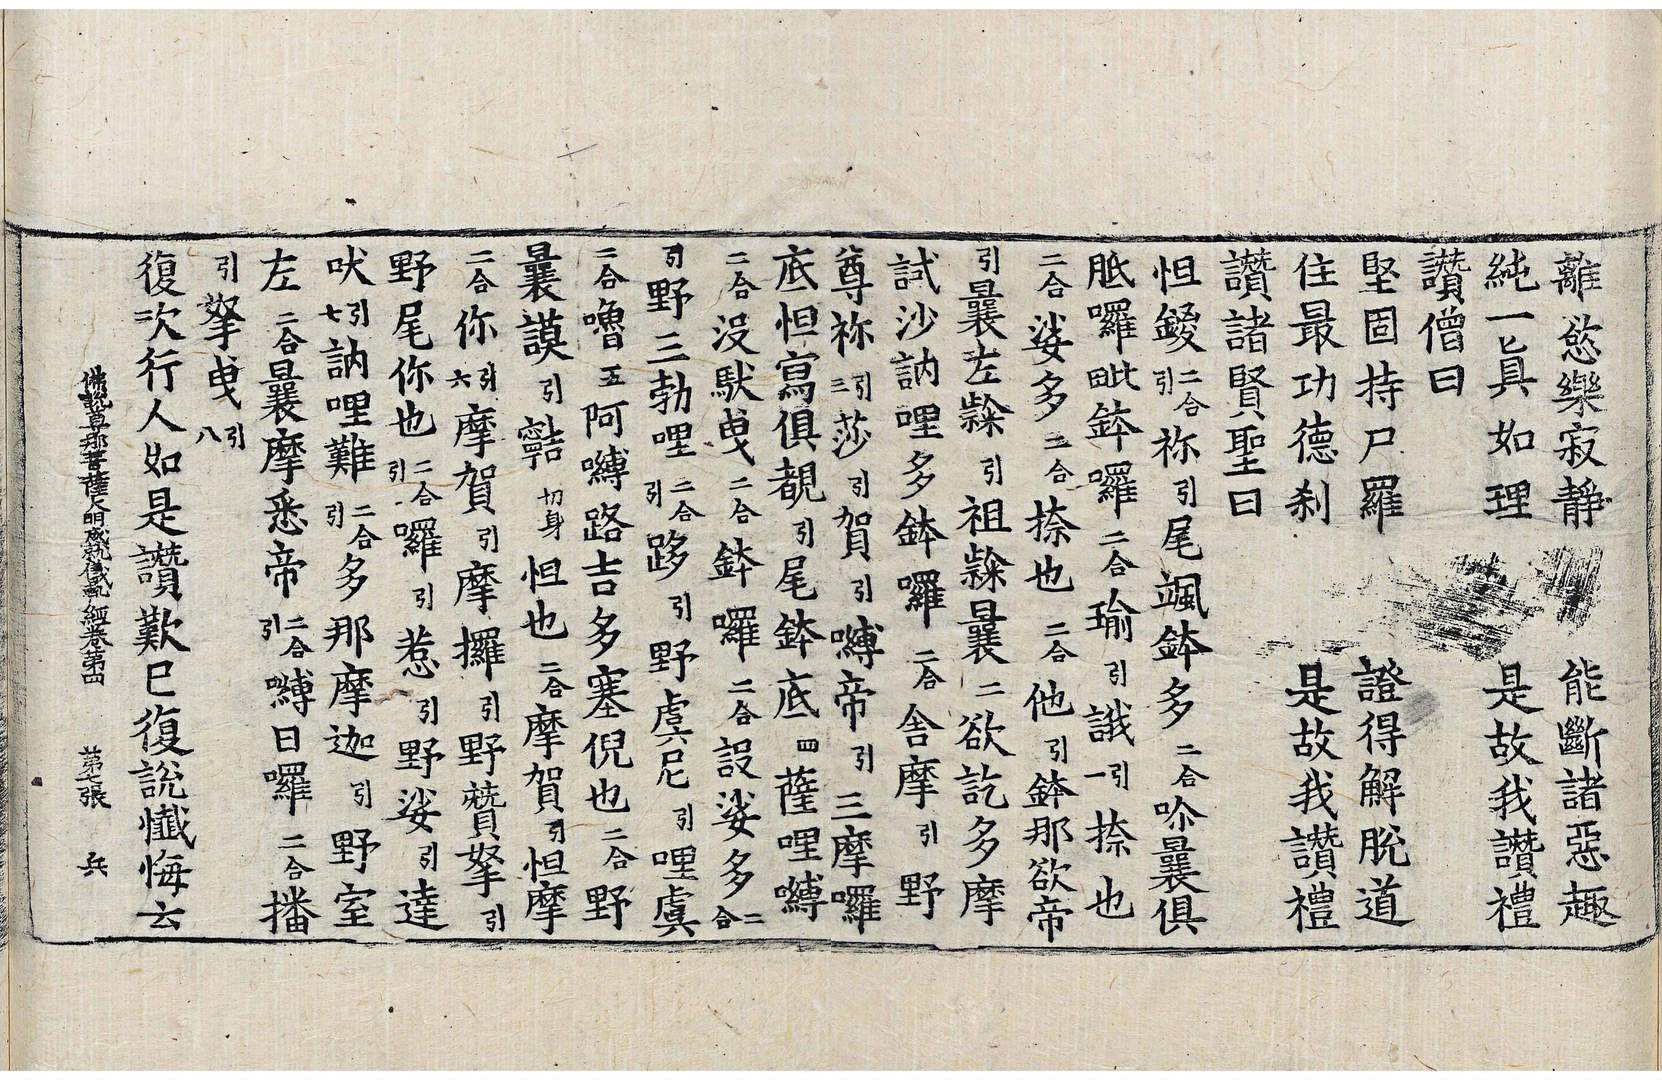 離慾樂寂靜 能斷諸惡趣
純一眞如理 是故我讚禮
讚僧曰
堅固持尸羅 證得解脫道
住最功德刹 是故我讚禮
讚諸賢聖曰
怛鍐二合引祢引尾颯鉢多二合吤曩俱
胝囉毗鉢囉二合瑜引誐引一捺也
二合娑多二合捺也二合他引鉢那欲帝
引曩左𪐀引祖𪐀曩二欲訖多摩
試沙訥哩多鉢囉二合舍摩引野
尊祢引三莎引賀引嚩帝引三摩囉
底怛寫俱覩引尾鉢底四薩哩嚩
二合沒馱曳二合鉢囉二合設娑多二合
引野三勃哩二合引跢引野虞六尼引哩虞
二合嚕五阿嚩路吉多塞倪也二合野
曩謨引𩕳切身怛也二合摩賀引怛摩
二合你引六摩賀引摩攞引野贊拏引
野尾你也二合引囉引惹引野娑引達
吠引七訥哩難二合引多那摩迦引野室
左二合曩摩悉帝二合引嚩日囉二合播
引拏曳引八
復次行人如是讚歎已復說懺悔云
佛說尊那菩薩大明成就儀軌經卷第四 第七張 兵